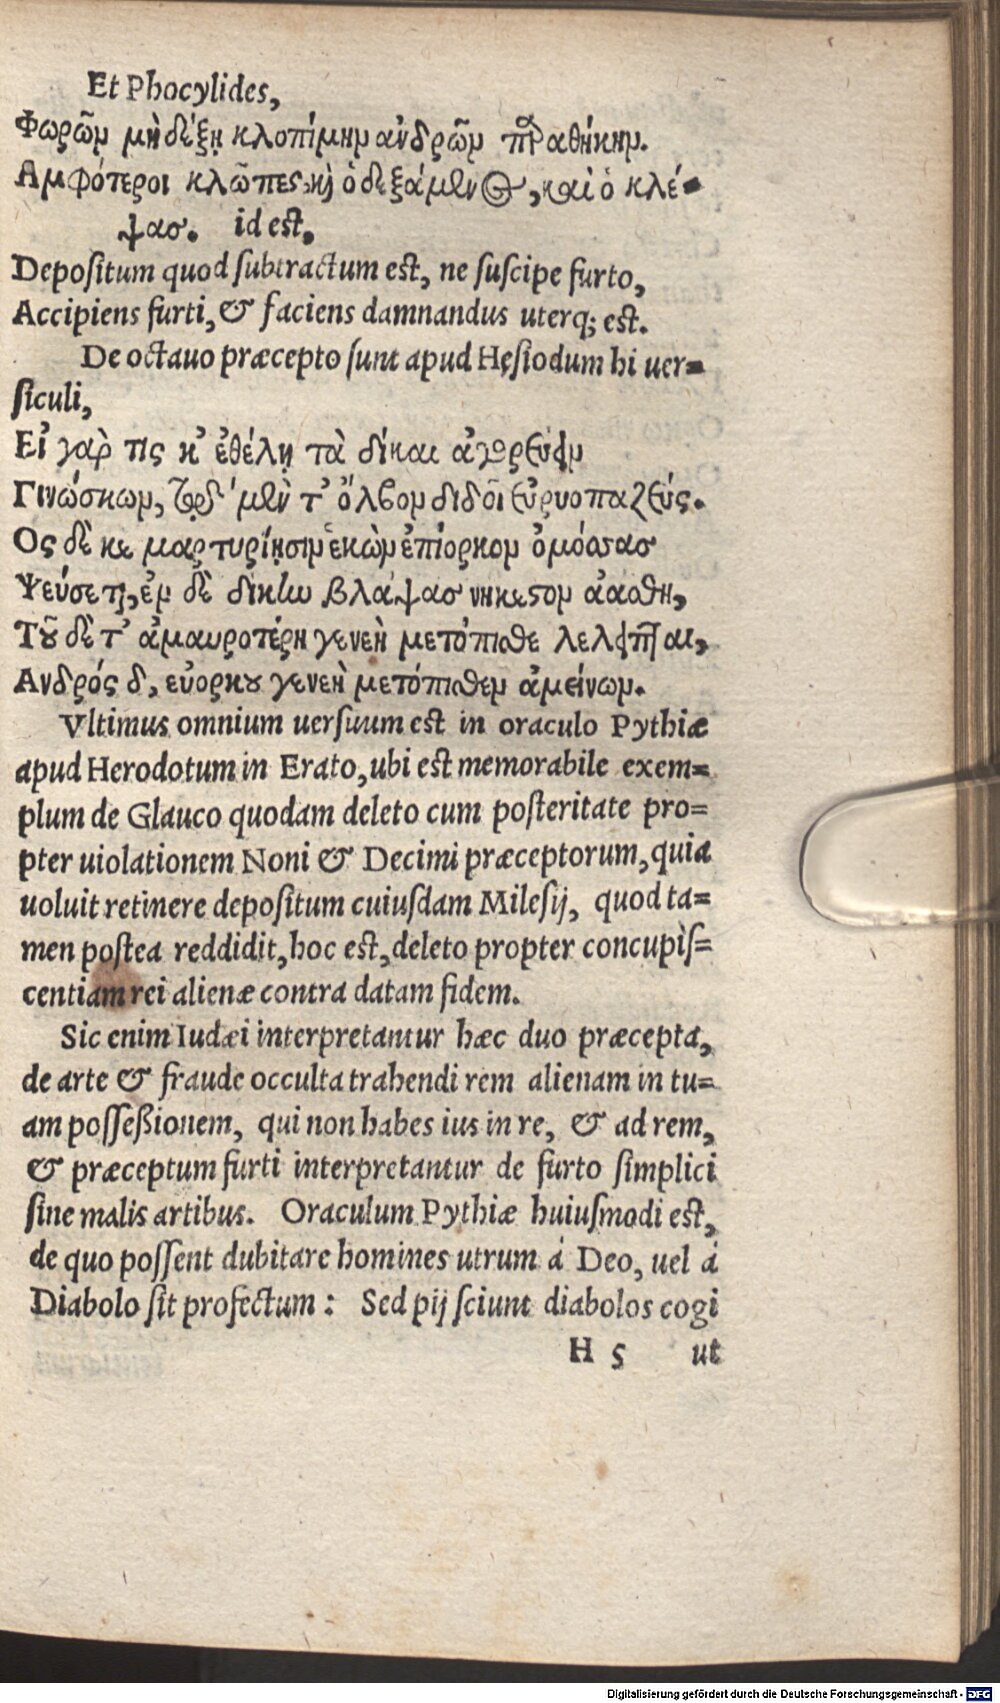 Et Phocylides,
Φωρῶν μὴ δέξῃ κλοπίμην ἀνδρῶν παραθήκην.
Αμφότεροι κλῶπες, καὶ ὁ δεξάμενος, καὶ ὁ κλέ-
ψας. id est,
Depositum quod subtractum est, ne suscipe furto,
Accipiens furti, & faciens damnandus uterq; est.
De octauo præcepto sunt apud Hęsiodum hi uer-
siculi,
Εἰ γαρ τίς κ' ἐθέλῃ τὰ δίκαι ἀγορεύειν
Γινώσκων, τῷ μὲν τ' ὄλβον διδοῖ εὐρυοπα ζεύς.
Ος δὲ κε μαρτυρίῃσιν ἑκὼν ἐπίορκον ὀμόσσας
Ψεύσεται, ἐν δὲ δικην βλαψας νηκεστον ἀάσθη,
Τοῦ δὲ τ' ἀμαυροτέρη γενεὴ μετόπισθε λελειπται,
Ανδρός δ, εὐορκου γενεὴ μετόπισθεν ἀμείνων.
Vltimus omnium uersuum est in oraculo Pythiæ
apud Herodotum in Erato, ubi est memorabile exem=
plum de Glauco quodam deleto cum posteritate pro=
pter uiolationem Noni & Decimi præceptorum, quia
uoluit retinere depositum cuiusdam Milesij, quod ta=
men postea reddidit, hoc est, deleto propter concupis=
centiam rei alienæ contra datam fidem.
Sic enim Iudæi interpretantur hæc duo præcepta,
de arte & fraude occulta trahendi rem alienam in tu=
am possessionem, qui non habes ius in re, & ad rem,
& præceptum furti interpretantur de furto simplici
sine malis artibus. Oraculum Pythiæ huiusmodi est,
de quo possent dubitare homines utrum á Deo, uel á
Diabolo sit profectum: Sed pij sciunt diabolos cogi
H 5 ut
Digitalisierung gefördert durch die Deutsche Forschungsgemeinschaft - DFG